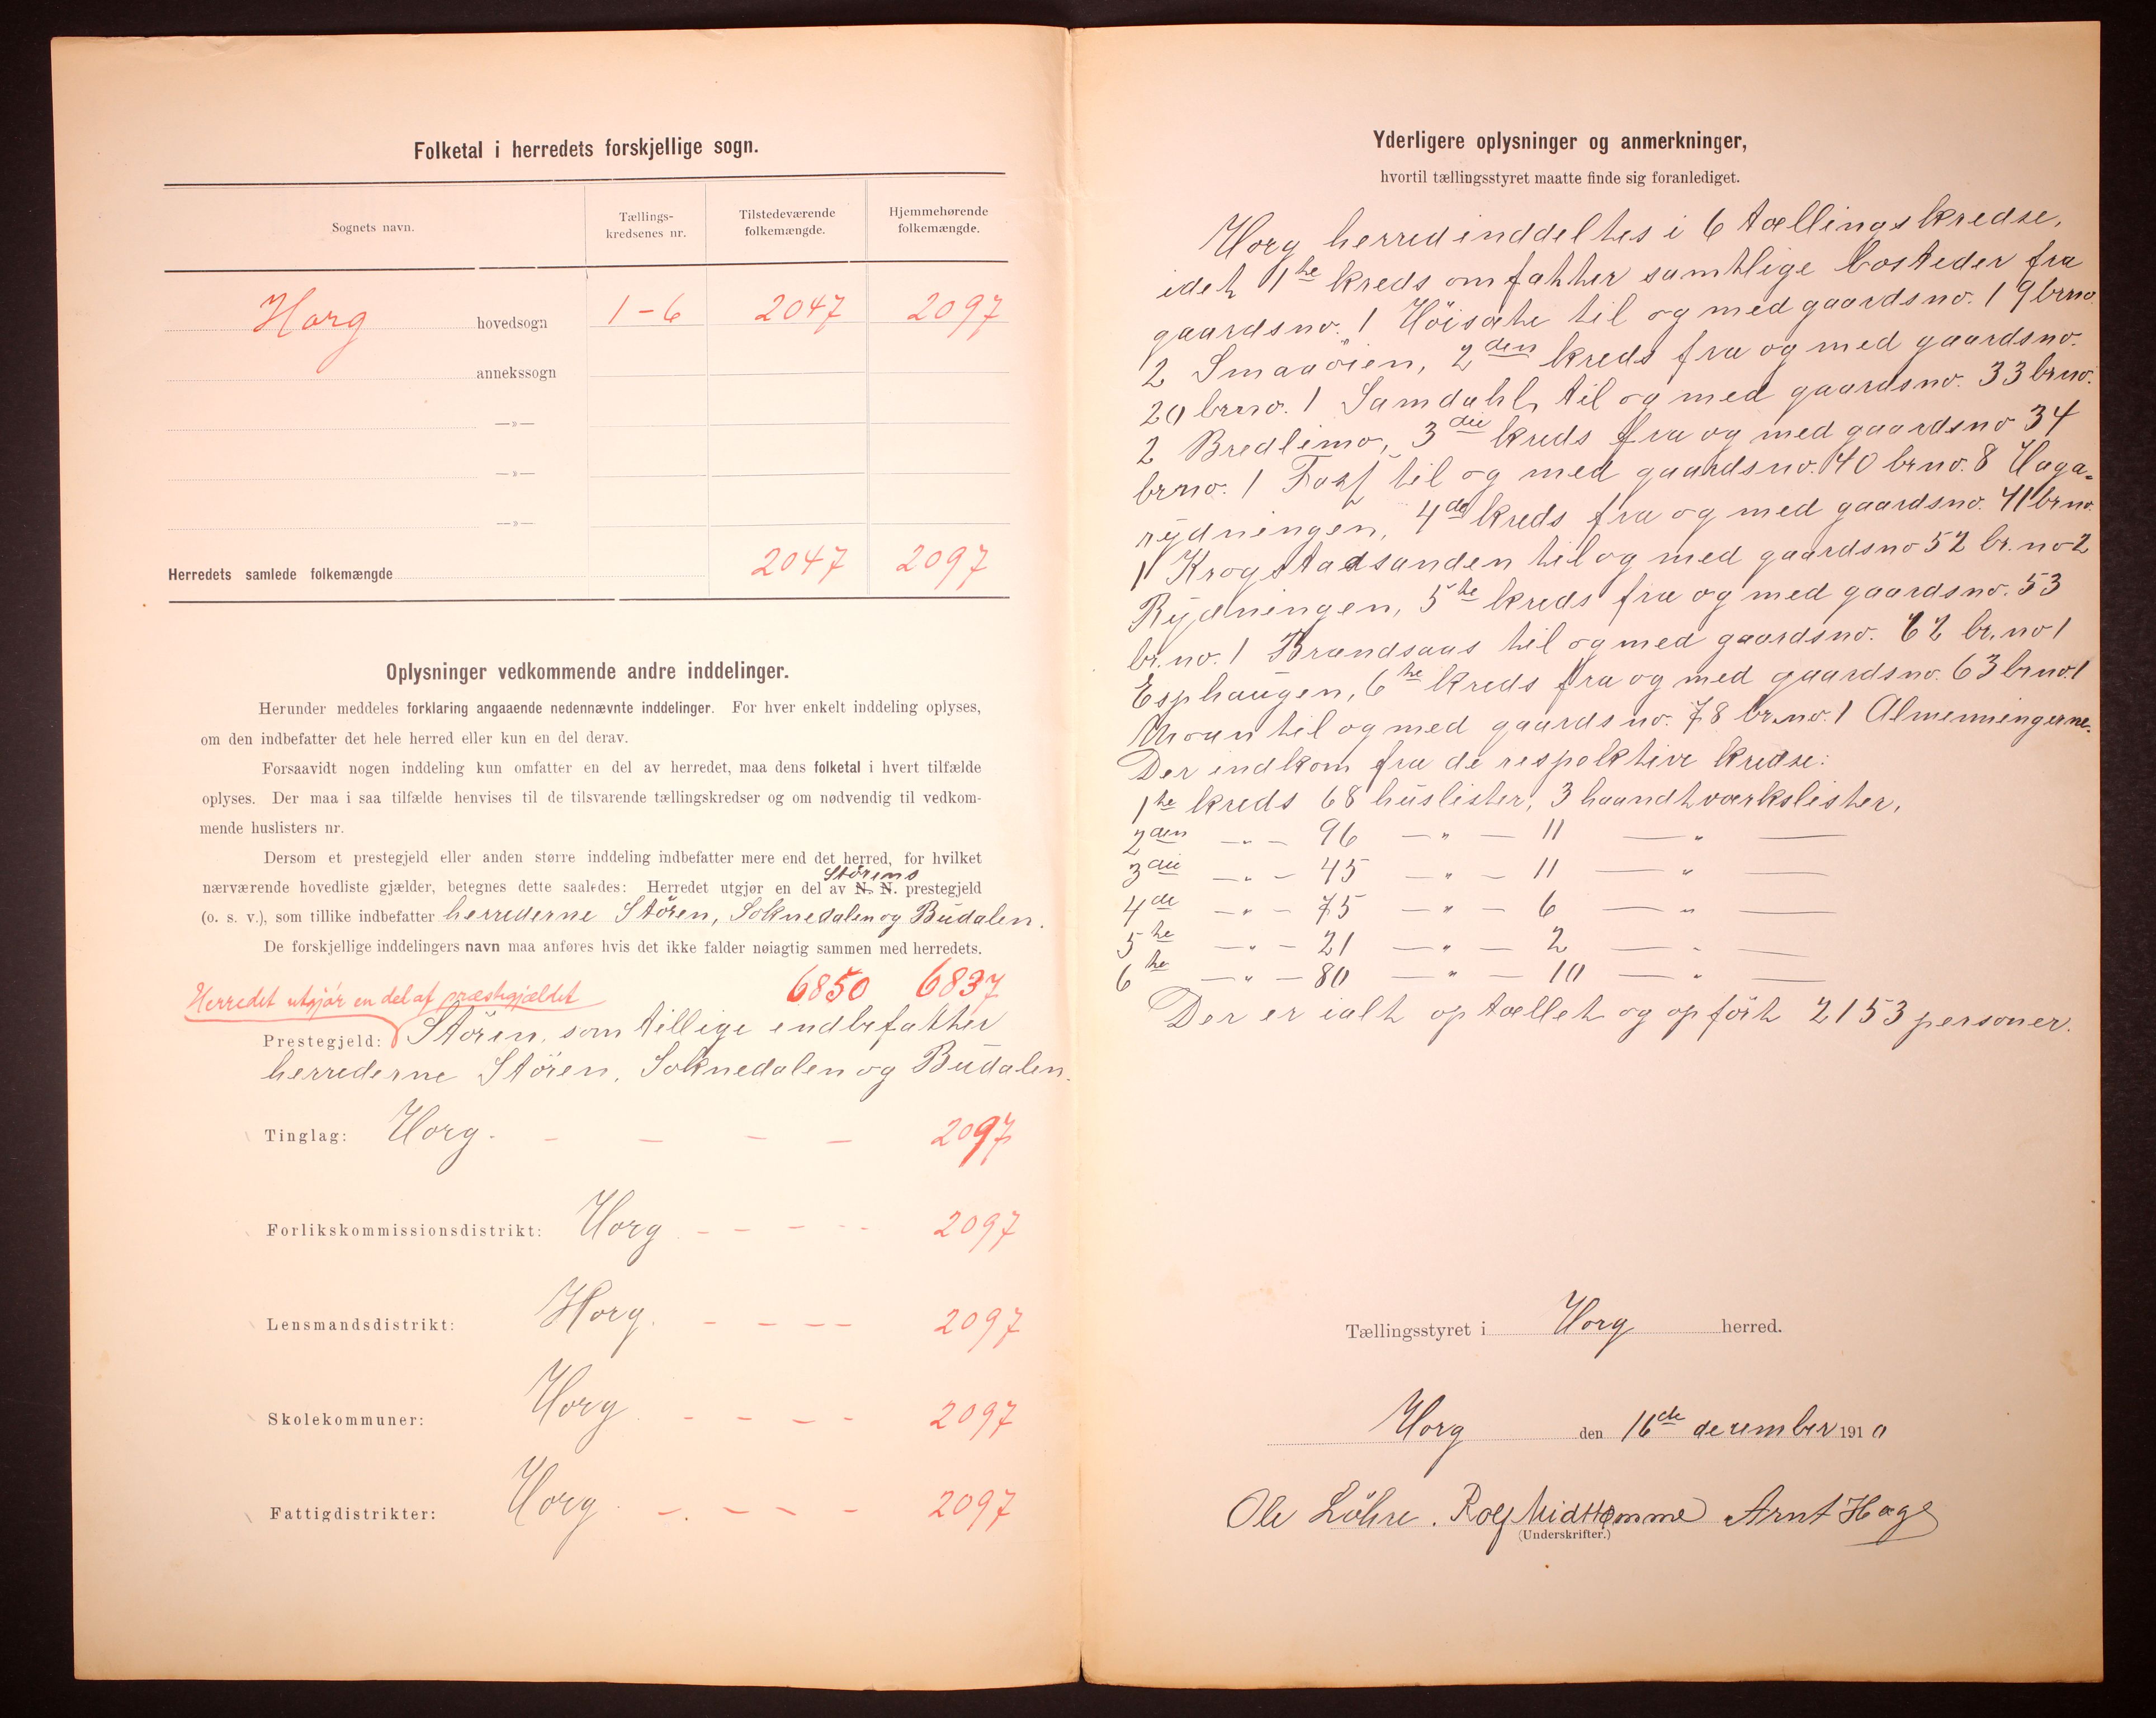 Folketal i herredets forskjellige sogn.
Sognets navn.
Tællings-
kredsenes nr.
Tilstedeværende
folkemængde.
Hjemmehørende
folkemængde.
Horg hovedsogn 1-6 2047 2097
annekssogn
—»—
—»—
—»—
Herredets samlede folkemængde 2047 2097
Oplysninger vedkommende andre inddelinger.
Herunder meddeles forklaring angaaende nedennævnte inddelinger. For hver enkelt inddeling oplyses,
om den indbefatter det hele herred eller kun en del derav.
Forsaavidt nogen inddeling kun omfatter en del av herredet, maa dens folketal i hvert tilfælde
oplyses. Der maa i saa tilfælde henvises til de tilsvarende tællingskredser og om nødvendig til vedkom-
mende huslisters nr.
Dersom et prestegjeld eller anden større inddeling indbefatter mere end det herred, for hvilket
Störens
nærværende hovedliste gjælder, betegnes dette saaledes: Herredet utgjør en del av N. N. prestegjeld
(o. s. v.), som tillike indbefatter herrederne Stören, Soknedalen og Budalen.
De forskjellige inddelingers navn maa anføres hvis det ikke falder nøiagtig sammen med herredets.
Herredet utgjör en del af præstegjældet 6850 6837
Prestegjeld: Stören, som tillige indbefatter
herrederne Stören, Soknedalen og Budalen.
Tinglag: Horg. – – – – 2097
Forlikskommissionsdistrikt: Horg – – – – – 2097
Lensmandsdistrikt: Horg. – – – – 2097
Skolekommuner: Horg – – – – 2097
Fattigdistrikter: Horg. – – – – 2097
Yderligere oplysninger og anmerkninger,
hvortil tællingsstyret maatte finde sig foranlediget.
Horg herred inddeltes i 6 tællingskredse,
idet 1te kreds omfatter samtlige bosteder fra
gaardsno. 1 Höisæte til og med gaardsno. 19 brno.
2 Smaaöien, 2den kreds fra og med gaardsno.
20 brno. 1 Samdahl, til og med gaardsno. 33 brno.
2 Bredlimo, 3die kreds fra og med gaardsno 34
brno. 1 Foss til og med gaardsno. 40 brno. 8 Haga-
rydningen, 4de kreds fra og med gaardsno. 41 brno.
1 Krogstadsanden til og med gaardsno 52 br. no 2
Rydningen, 5te kreds fra og med gaardsno. 53
br. no. 1 Brandsaas til og med gaardsno. 62 br. no 1
Esphaugen, 6te kreds fra og med gaardsno. 63 brno. 1
Moan til og med gaardsno. 78 br. no. 1 Almenningerne.
Der indkom fra de respektive kredse:
1te kreds 68 huslister, 3 haandtværkslister,
2den –"– 96 –"– 11 –"–
3die –"– 45 –"– 11 –"–
4de –"– 75 –"– 6 –"–
5te –"– 21 –"– 2 –"–
6te –"– 80 –"– 10 –"–
Der er ialt optællet og opfört 2153 personer.
Tællingsstyret i Horg herred.
Horg den 16de december 1910
Ole Löhre. Rolf Midttömme Arnt Hage
(Underskrifter.)